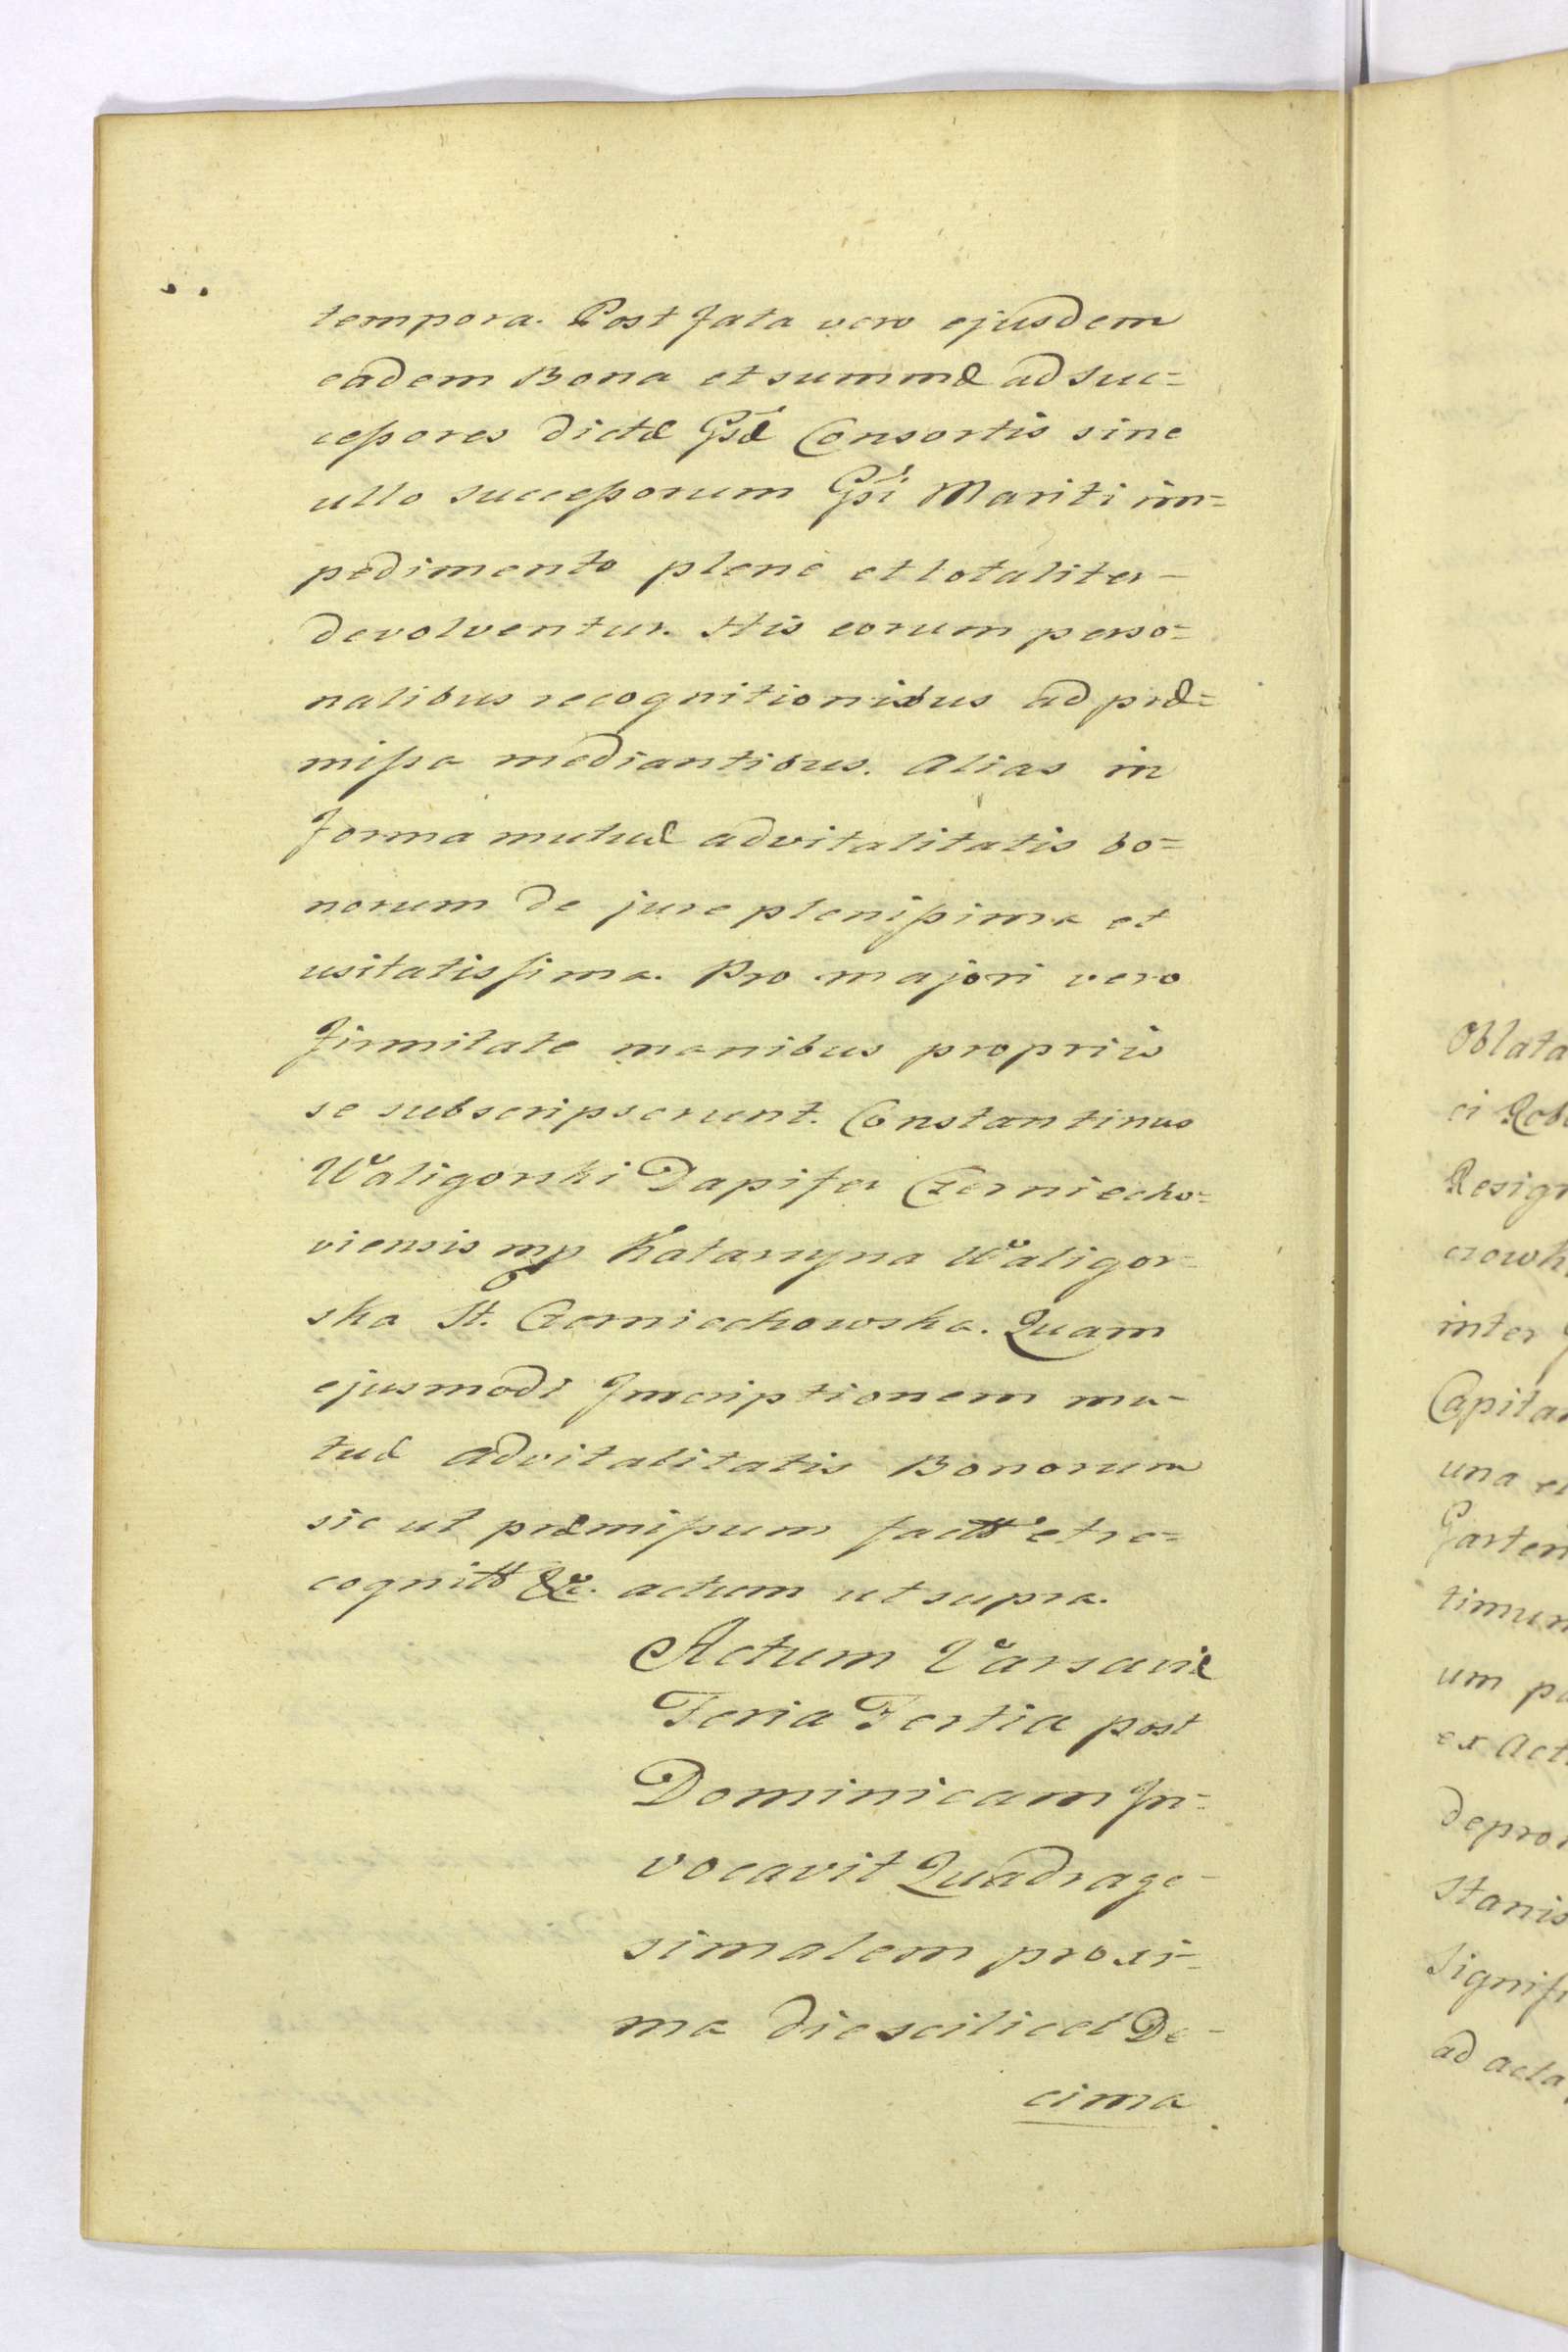 tempora. Post fata vero ejusdem
eadem Bona et summæ ad suc=
cessores dictæ Gsæ Consortis sine
ullo successorum Gsi Mariti im=
pedimento plene et totaliter
devolventur. His eorum perso=
nalibus recognitionibus ad præ=
missa mediantibus. Alias in
forma mutuæ advitalitatis bo=
norum de jure plenissima et
usitatissima. Pro majori vero
firmitate manibus propriis
se subscripserunt. Constantinus
Waligorski Dapifer Czerniecho=
viensis mp Katarzyna Waligor=
ska St. Czerniechowska. Quam
ejusmodi Inscriptionem mu-
tuæ advitalitatis Bonorum
sic ut præmissum factt et re=
cognitt &c. actum ut supra.
Actum Varsaviæ
Feria Tertia post
Dominicam In=
vocavit Quadrage-
simalem proxi=
ma die scilicet De-
cima
Oblata
Resign
inter
una et
um
ex Act
Stanis
Signifi
ad acta